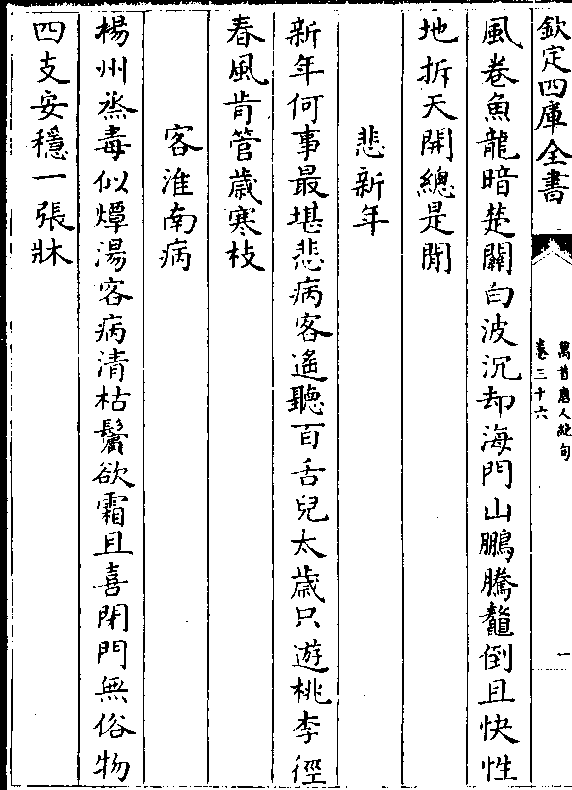 欽定四庫全書
萬首唐人絶句
卷三十六
一
風卷魚龍暗楚關白波沉却海門山鵬騰鼇倒且快性
地拆天開總是閒
悲新年
新年何事最堪悲病客遙聽百舌兒太歳只遊桃李徑
春風肯管歳寒枝
客淮南病
楊州蒸毒似燂湯客病清枯鬢欲霜且喜閉門無俗物
四支安穩一張牀